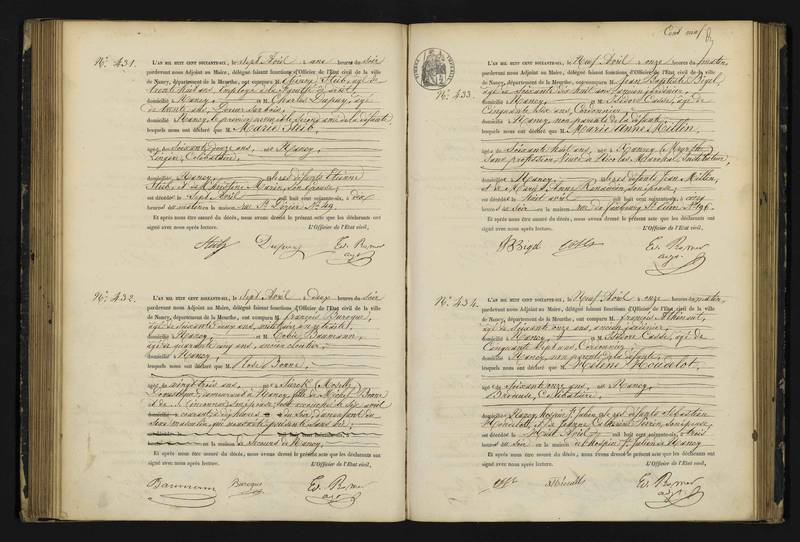 Cent neuf
N.o 431.
L'AN MIL HUIT CENT SOIXANTE-SIX, le Sept Avril à une heures du soir
pardevant nous Adjoint au Maire, délégué faisant fonctions d'Officier de l'État civil de la ville
de Nancy, département de la Meurthe, ont comparu M. Stéib, âgé de
trente huit ans, employé à la
domicilié à Nancy, et M. Charles Dupuy, âgé
de trente ans,
domicilié à Nancy, le premier neveu, le second ami de la défunte
lesquels nous ont déclaré que M. Marie Stéib,
âgée de Soixante douze ans, née à Nancy,
Lingère, Célibataire,
domiciliée à Nancy, fille des défunts Étienne
Stéib, et de Christine Marin, son épouse,
est décédée le Sept Avril mil huit cent soixante-six, à dix
heures du matin en la maison rue St Dizier N.o 49.
Et après nous être assuré du décès, nous avons dressé le présent acte que les déclarants ont
signé avec nous après lecture. L'Officier de l'État civil,
Stéib Dupuy Ed. Romer
N.o 432.
L'AN MIL HUIT CENT SOIXANTE-SIX, le Sept Avril à deux heures du soir
pardevant nous Adjoint au Maire, délégué faisant fonctions d'Officier de l'État civil de la ville
de Nancy, département de la Meurthe, ont comparu M. François Baroque,
âgé de Soixante deux ans, militaire en retraite,
domicilié à Nancy, et M. Baumann,
âgé de quarante cinq ans, ancien cloutier,
domicilié à Nancy,
lesquels nous ont déclaré que M. Rose Bonne,
âgée de vingt trois ans, née à Sierck (Moselle)
Domestique demeurant à Nancy, fille de Michel Bonne
et de son épouse, est accouchée le six avril
courant à dix heures du soir, d'un enfant du
Sexe masculin, qui nous a été présenté sans vie,
en la maison de Secours de Nancy.
Et après nous être assuré du décès, nous avons dressé le présent acte que les déclarants ont
signé avec nous après lecture. L'Officier de l'État civil,
Baumann Baroque Ed. Romer
N.o 433.
L'AN MIL HUIT CENT SOIXANTE-SIX, le Neuf Avril à onze heures du matin,
pardevant nous Adjoint au Maire, délégué faisant fonctions d'Officier de l'État civil de la ville
de Nancy, département de la Meurthe, ont comparu M. Jean Baptiste Bigel,
âgé de Soixante dix huit ans,
domicilié à Nancy, et M. Isidore Casse, âgé de
Cinquante Six ans, Cordonnier,
domicilié à Nancy, non parents de la défunte,
lesquels nous ont déclaré que M. Marie Anne Millon,
âgée de Soixante huit ans, née à Nancy (Meurthe)
Sans profession, Veuve de Nicolas Maréchal, Instituteur,
domiciliée à Nancy, fille des défunts Jean Millon,
et de Marie Anne son épouse,
est décédée le huit avril mil huit cent soixante-six, à cinq
heures du soir en la maison rue du faubourg St Pierre N.o 196.
Et après nous être assuré du décès, nous avons dressé le présent acte que les déclarants ont
signé avec nous après lecture. L'Officier de l'État civil,
Ed. Romer
N.o 434.
L'AN MIL HUIT CENT SOIXANTE-SIX, le Neuf Avril à onze heures du matin,
pardevant nous Adjoint au Maire, délégué faisant fonctions d'Officier de l'État civil de la ville
de Nancy, département de la Meurthe, ont comparu M. François
âgé de Soixante onze ans, ancien
domicilié à Nancy, et M. Isidore Casse, âgé de
Cinquante Sept ans, Cordonnier,
domicilié à Nancy, non parents de la défunte,
lesquels nous ont déclaré que M. Hélène Houdelot,
âgée de Soixante onze ans, née à Nancy,
Brodeuse, Célibataire,
domiciliée à Nancy, hospice St Julien, fille des défunts Sébastien
Houdelot, et de Jeanne Catherine Perrin, son épouse,
est décédée le Huit Avril mil huit cent soixante-six, à trois
heures du soir en la maison d'hospice St Julien de Nancy
Et après nous être assuré du décès, nous avons dressé le présent acte que les déclarants ont
signé avec nous après lecture. L'Officier de l'État civil,
Ed. Romer